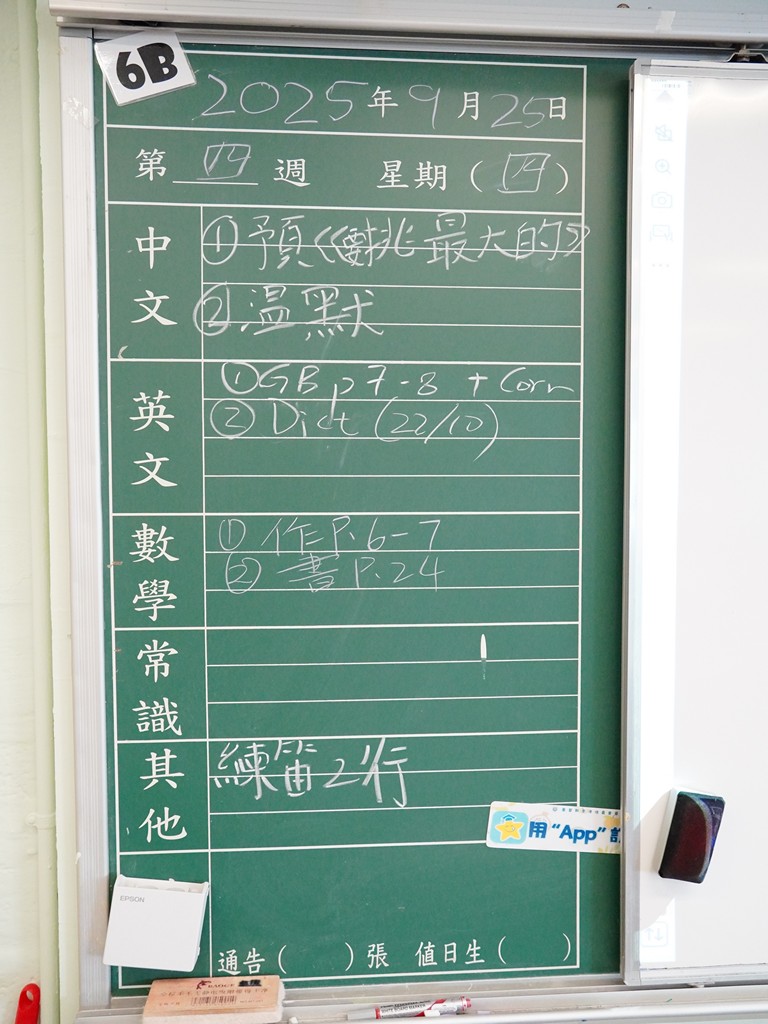 6B
2025年9月25日
第 四 週 星期（四）
中文
①預《要挑最大的》
②温默
英文
①GB p7-8 + Corr
② Dict (22/10)
數學
① 作P.6-7
② 書P.24
常識
其他
練笛2行
用“App”
EPSON
通告（ ）張 值日生（ ）